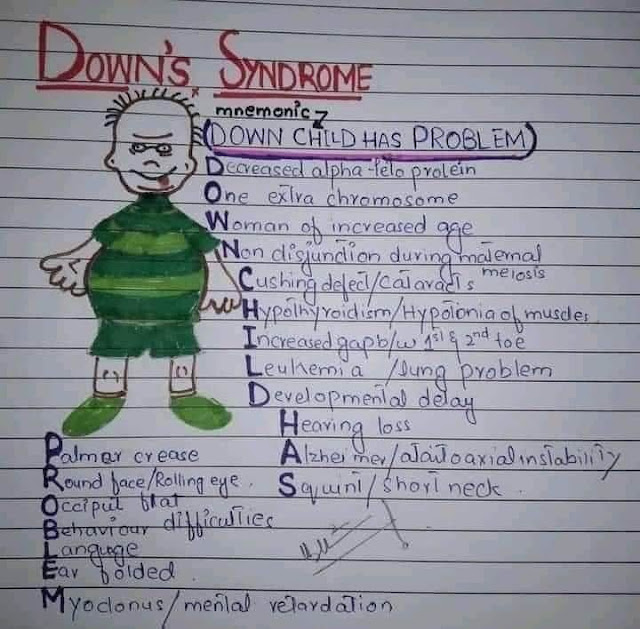 DOWN'S SYNDROME
mnemonic
(DOWN CHILD HAS PROBLEM)
Decreased alpha-feto protein
One extra chromosome
Woman of increased age
Non disjunction during maternal
meiosis
Cushing defect/cataracts
Hypothyroidism/Hypotonia of muscles
Increased gap b/w 1st & 2nd toe
Leukemia /lung problem
Developmental delay
Hearing loss
Alzheimer/atatoaxial instability
Squint/short neck.
Palmar crease
Round face/Rolling eye.
Occiput flat
Behaviour difficulties
Language
Ear folded
Myoclonus/mental retardation